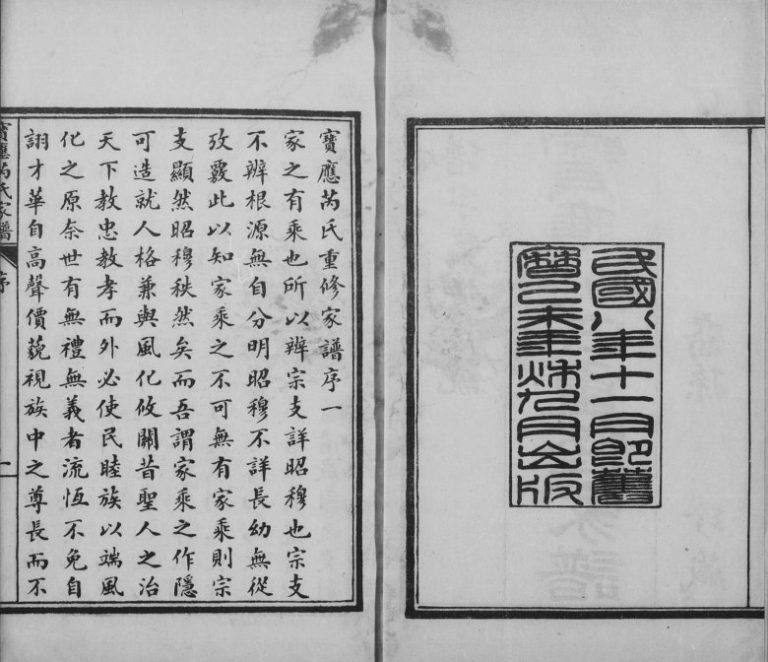 民國八年十一月即舊
曆己未年秋九月出版
寶應芮氏重修家譜序一
家之有乘也所以辨宗支詳昭穆也宗支
不辨根源無自分明昭穆不詳長幼無從
攷覈此以知家乘之不可無有家乘則宗
支顯然昭穆秩然矣而吾謂家乘之作隱
可造就人格兼與風化攸關昔聖人之治
天下教忠教孝而外必使民睦族以端風
化之原奈世有無禮無義者流恆不免自
詡才華自高聲價藐視族中之尊長而不
寶應芮氏家譜
序